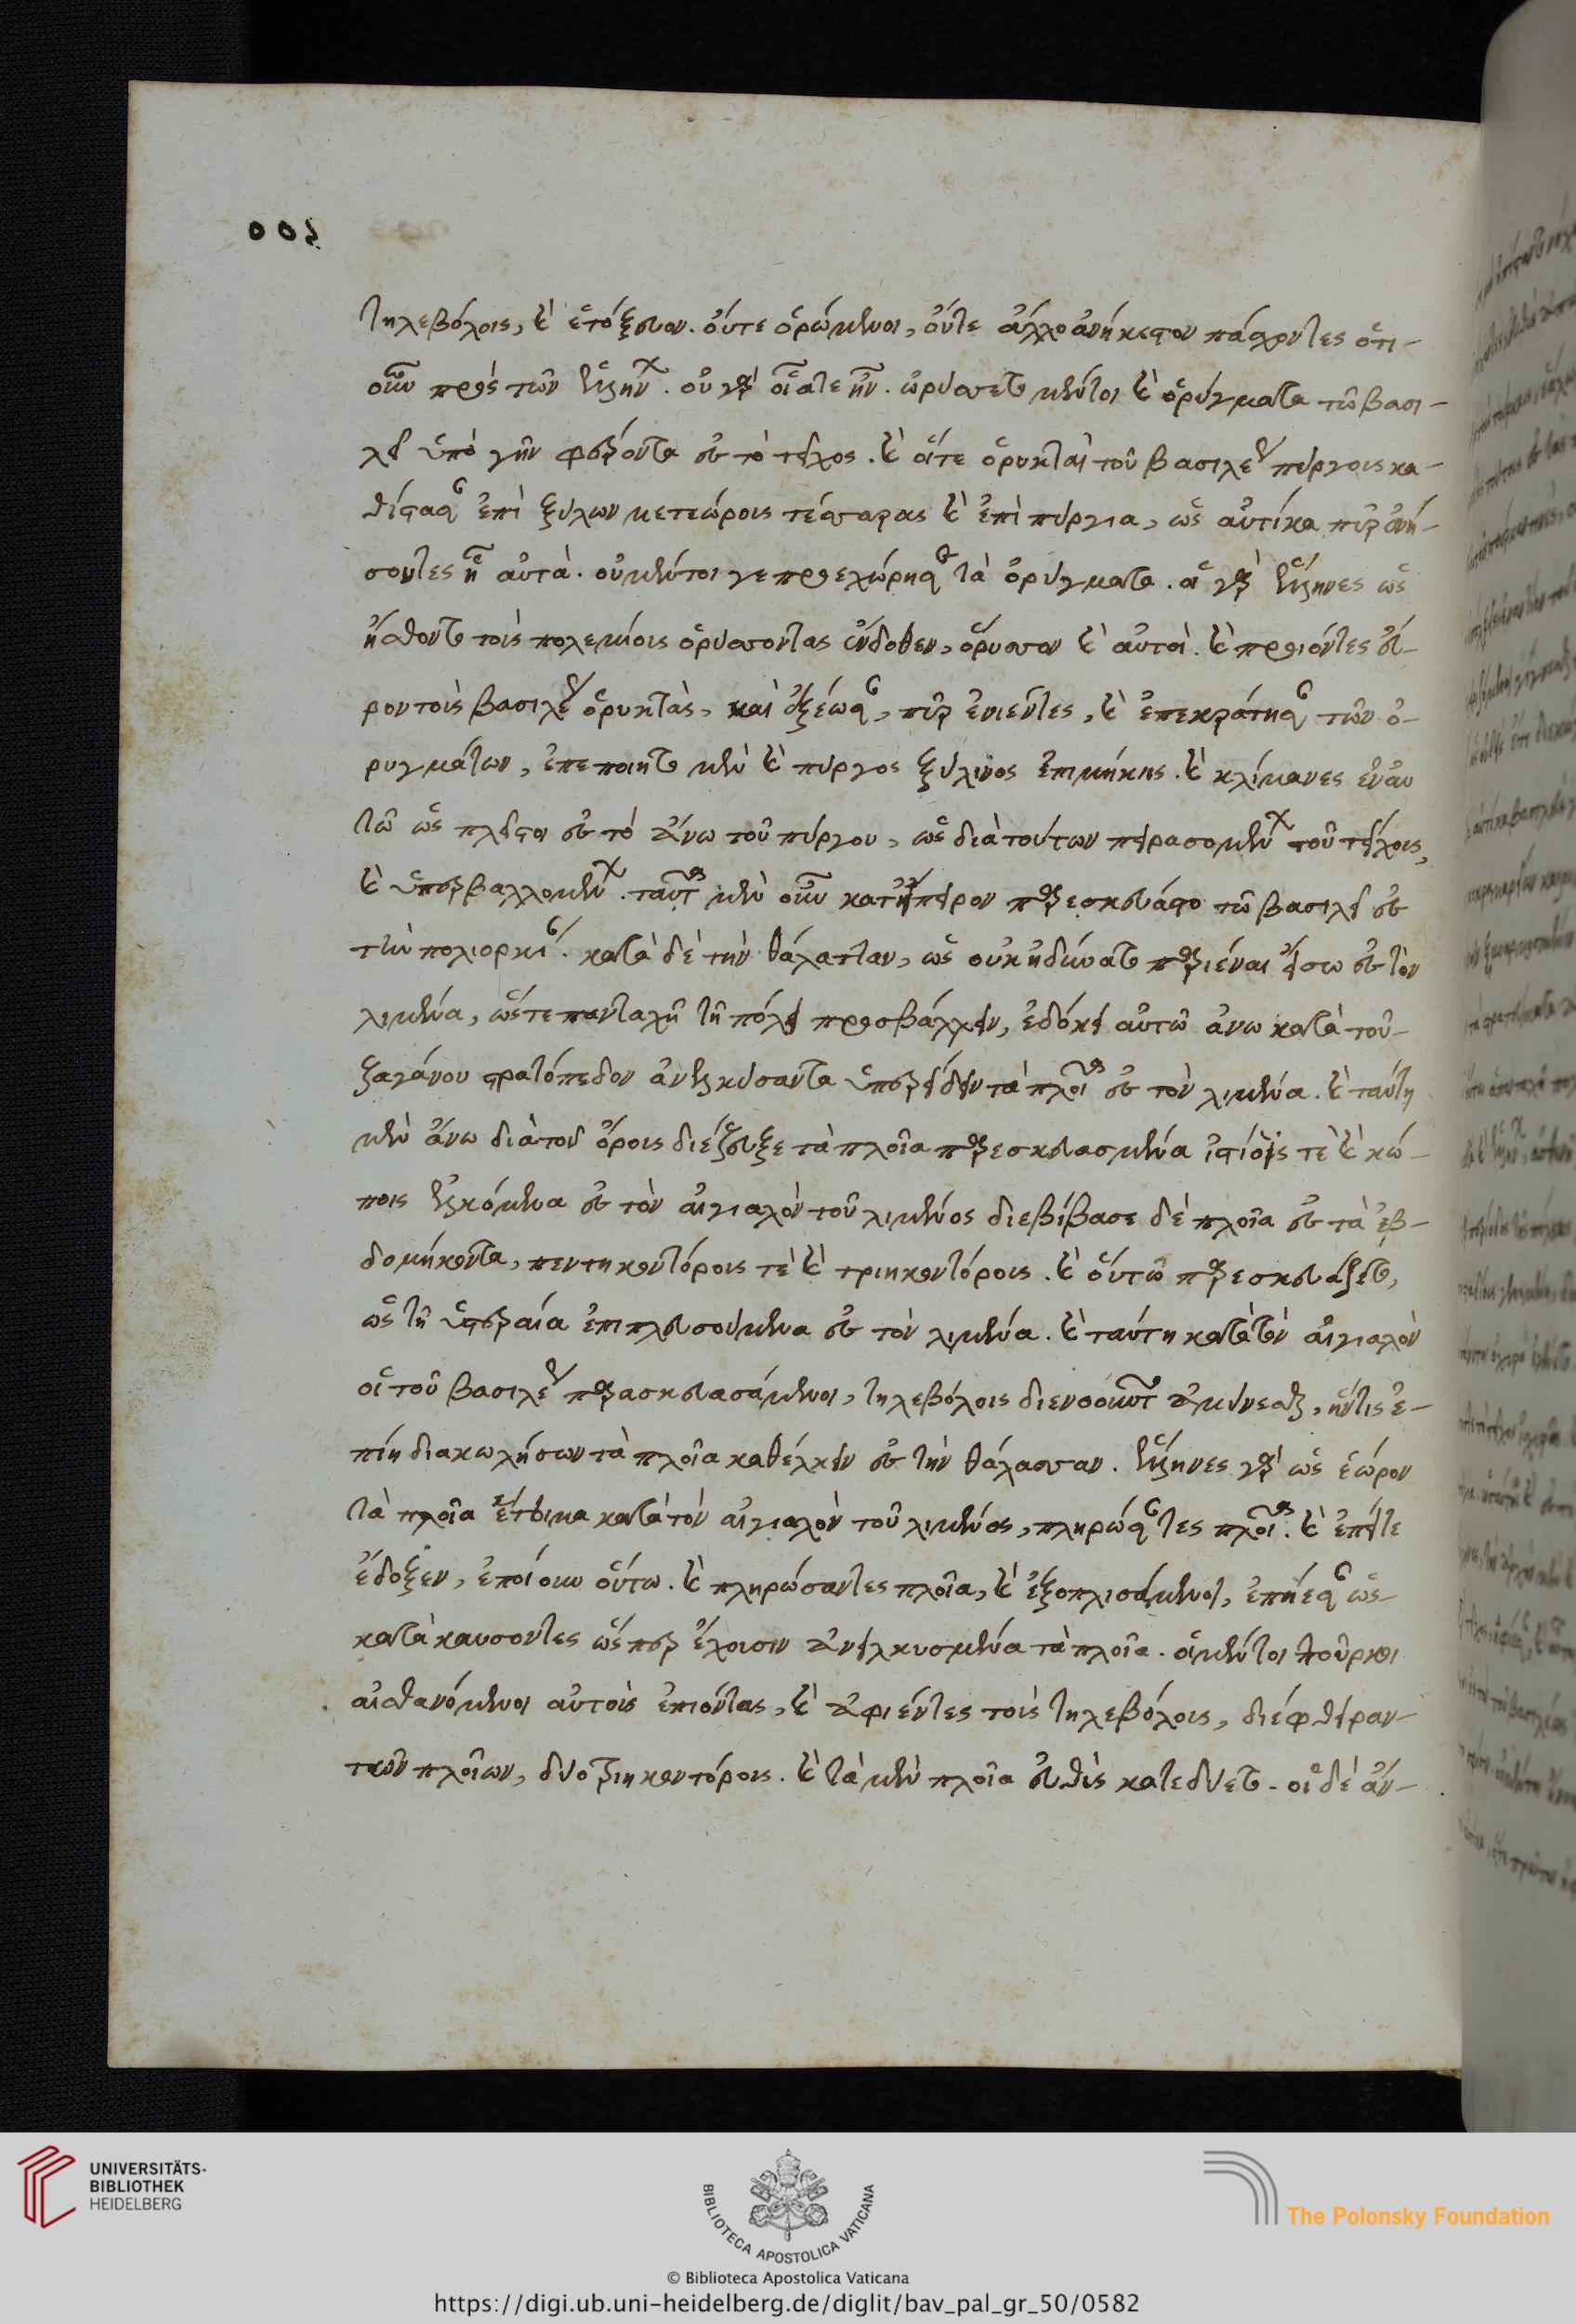 τηλεβόλοις, καὶ ἐτόξευον. οὔτε ὁρώμενοι, οὔτε ἄλλο ἀνήκεστον πάσχοντες ὁτι-
οῦν πρὸς τῶν ἑλλήνων. οὐ γὰρ οἷά τε ἦν. ὠρύσσετο μέντοι καὶ ὀρύγματα τῶ βασι-
λεῖ ὑπὸ γῆν φέροντα εἰς τὸ τεῖχος. καὶ οἵτε ὀρυκταὶ τοῦ βασιλέως πύργους κα-
θίστασαν ἐπὶ ξύλων μετεώρους τέσσαρας καὶ ἐπὶ πύργια, ὡς αὐτίκα πῦρ ἐνή-
σοντες ἐς αὐτά. οὐ μέντοι γε προεχώρησε τὰ ὀρύγματα. οἱ γὰρ ἕλληνες ὡς
ἤσθοντο τοὺς πολεμίους ὀρύσσοντας ἔνδοθεν, ὤρυσσον καὶ αὐτοί. καὶ προϊόντες εὗ-
ρον τοὺς βασιλέως ὀρυκτάς, καὶ ἐξέωσαν, πῦρ ἐνιέντες, καὶ ἐπεκράτησαν τῶν ὀ-
ρυγμάτων, ἐπεποίητο μὲν καὶ πύργος ξύλινος ἐπιμήκης. καὶ κλίμακες ἐν αυ
τῶ ὡς πλεῖσται εἰς τὸ ἄνω τοῦ πύργου, ὡς διὰ τούτων πειρασομένων τοῦ τείχους,
καὶ ὑπερβαλλομένων. ταῦτα μὲν οὖν κατ' ἤπειρον παρεσκεύαστο τῶ βασιλεῖ εἰς
τὴν πολιορκίαν. κατὰ δὲ τὴν θάλατταν, ὡς οὐκ ἠδύνατο παριέναι εἴσω εἰς τὸν
λιμένα, ὥστε πανταχῆ τῆ πόλει προσβάλλειν, ἐδόκει αὐτῶ ἄνω κατὰ τοῦ
ζαγάνου στρατόπεδον ἀνελκύσαντα ὑπερ τὰ πλοῖα εἰς τὸν λιμένα. καὶ ταύτη
μὲν ἄνω διὰ τοῦ ὄρους διέζευξε τὰ πλοῖα παρεσκευασμένα ἱστίοις τὲ καὶ κώ-
παις ἑλκόμενα εἰς τὸν αἰγιαλὸν τοῦ λιμένος διεβίβασε δὲ πλοῖα εἰς τὰ ἑβ-
δομήκοντα, πεντηκοντόρους τὲ καὶ τριηκοντόρους. καὶ οὕτω παρεσκευάζετο,
ὡς τῆ ὑστεραία ἐπιπλευσούμενα εἰς τὸν λιμένα. καὶ ταύτη κατὰ τὸν αἰγιαλὸν
οἱ τοῦ βασιλέως παρασκευασάμενοι, τηλεβόλοις διενοοῦντο ἀμύνεσθαι, ἤντις ἐ-
πίη διακωλύσων τὰ πλοῖα καθέλκειν εἰς τὴν θάλασσαν. ἕλληνες γὰρ ὡς ἑώρον
τὰ πλοῖα ἕτοιμα κατὰ τὸν αἰγιαλὸν τοῦ λιμένος, πληρώσαντες πλοῖα. καὶ ἐπείτε
ἔδοξεν, ἐποίουν οὕτω. καὶ πληρώσαντες πλοῖα, καὶ ἐξοπλισάμενοι, ἐπήεσαν ὡς
κατακαύσοντες ὥσπερ ἔχουσιν ἀνειλκυσμένα τὰ πλοῖα. οἱ μέντοι τοῦρκοι
αἰσθανόμενοι αὐτοὺς ἐπιόντας, καὶ ἀφιέντες τοὺς τηλεβόλους, διέφθειραν
τῶν πλοίων, δύο τριηκοντόρους. καὶ τὰ μὲν πλοῖα εὐθὺς κατεδύετο. οἱ δὲ ἄν-
UNIVERSITÄTS-
BIBLIOTHEK
HEIDELBERG
BIBLIOTECA APOSTOLICA VATICANA
The Polonsky Foundation
© Biblioteca Apostolica Vaticana
https://digi.ub.uni-heidelberg.de/diglit/bav_pal_gr_50/0582